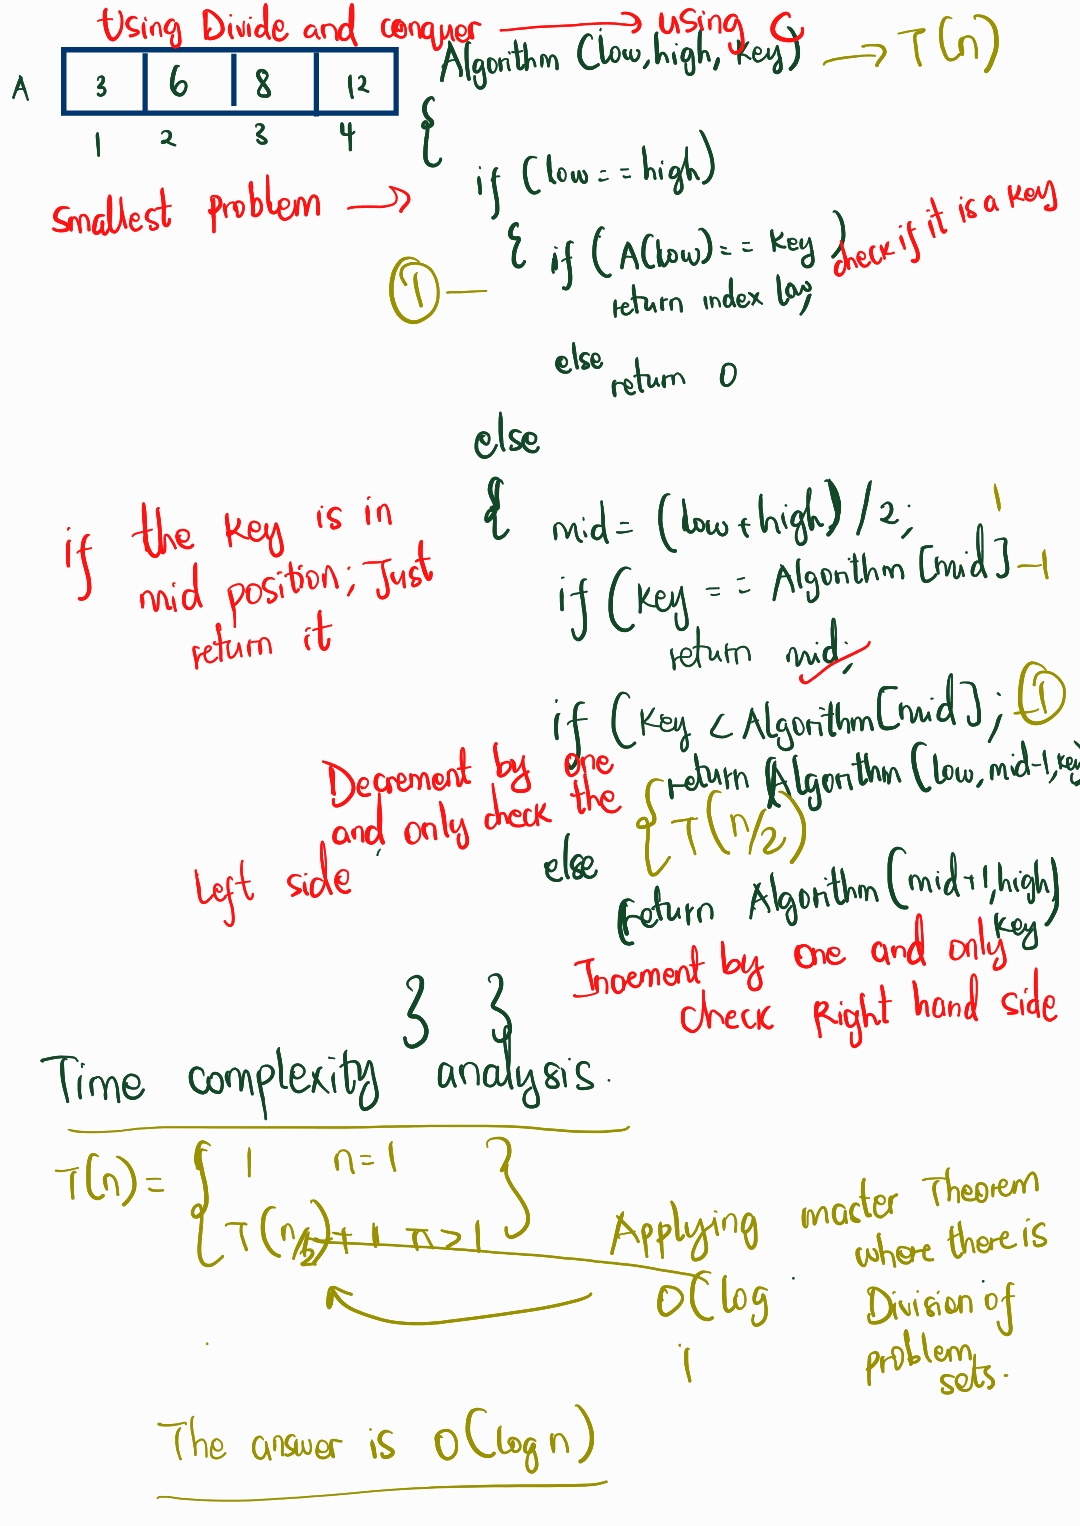 Using Divide and conquer → using C
Algorithm (low, high, key) → T(n)
A
3 6 8 12
1 2 3 4
{
if (low == high)
smallest problem →
{ if (A(low) == key)
check if it is a key
1 —
return index low;
else
return 0
else
{ mid = (low + high) / 2; 1
if the key is in
mid position; Just
return it
if (key == Algorithm [mid] — 1
return mid;
if (key < Algorithm [mid]; — 1
return Algorithm (low, mid-1, key
Decrement by one
and only check the
Left side
{ T(n/2)
else
return Algorithm (mid+1, high)
key
Increment by one and only
check Right hand side
} }
Time complexity analysis.
T(n) = { 1 n=1 }
T(n/b) + 1 n>1
Applying macter Theorem
where there is
Division of
problem
sets.
O(log
1
The answer is O(log n)